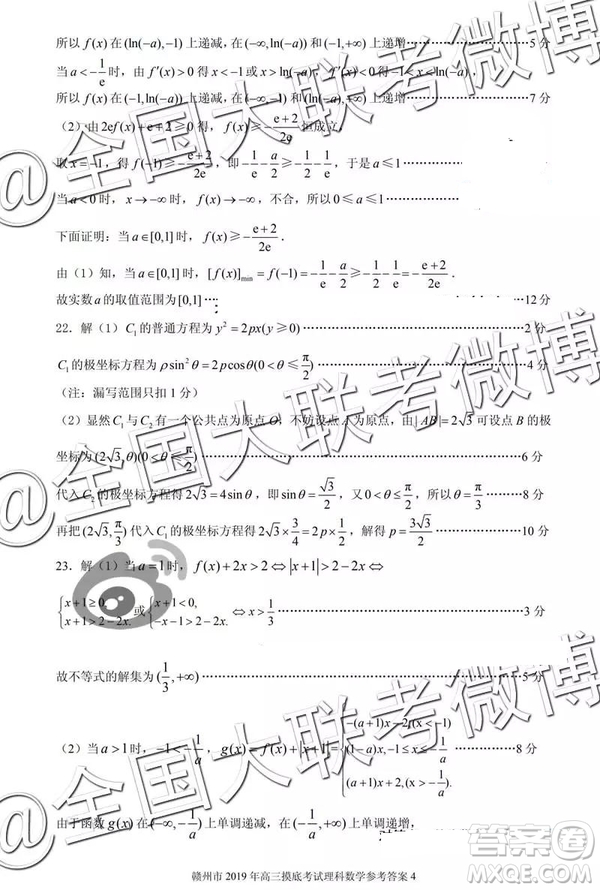 所以 f(x) 在 (ln(-a),-1) 上递减,在 (-∞,ln(-a)) 和 (-1,+∞) 上递增⋯⋯5分
当 a<-1/e 时,由 f′(x)>0 得 x<-1 或 x>ln(-a), f′(x)<0 得 -1<x<ln(-a),
所以 f(x) 在 (-1,ln(-a)) 上递减,在 (-∞,-1) 和 (ln(-a),+∞) 上递增⋯⋯7分
(2)由 2ef(x)+e+2≥0 得, f(x)≥-(e+2)/(2e) 恒成立,
取 x=-1,得 f(-1)≥-(e+2)/(2e),即 -1/e-a/2≥-(e+2)/(2e),于是 a≤1⋯⋯
当 a<0 时, x→-∞ 时, f(x)→-∞,不合,所以 0≤a≤1⋯⋯
下面证明:当 a∈[0,1] 时, f(x)≥-(e+2)/(2e).
由(1)知,当 a∈[0,1] 时,[f(x)]min=f(-1)=-1/e-a/2≥-1/e-1/2=-(e+2)/(2e)
故实数 a 的取值范围为 [0,1]⋯⋯12分
22.解(1)C₁ 的普通方程为 y²=2px(y≥0)⋯⋯2分
C₁ 的极坐标方程为 ρsin²θ=2pcosθ(0<θ≤π/2)⋯⋯4分
(注:漏写范围只扣1分)
(2)显然 C₁ 与 C₂ 有一个公共点为原点 O,不妨设点 A 为原点,由 |AB|=2√3 可设点 B 的极
坐标为 (2√3,θ)(0<θ≤π/2)⋯⋯6分
代入 C₂ 的极坐标方程得 2√3=4sinθ,即 sinθ=√3/2,又 0<θ≤π/2,所以 θ=π/3⋯⋯8分
再把 (2√3,π/3) 代入 C₁ 的极坐标方程得 2√3×3/4=2p×1/2,解得 p=3√3/2⋯⋯10分
23.解(1)当 a=1 时, f(x)+2x>2⇔|x+1|>2-2x⇔
{x+1≥0, x+1>2-2x. 或 {x+1<0, -x-1>2-2x. ⇔x>1/3⋯⋯4分
故不等式的解集为 (1/3,+∞)⋯⋯5分
(2)当 a>1 时,-1<-1/a, g(x)=f(x)+|x+1|={-(a+1)x-2,(x<-1) (1-a)x,(-1≤x≤-1/a) (a+1)x+2,(x>-1/a).⋯⋯8分
由于函数 g(x) 在 (-∞,-1/a) 上单调递减,在 (-1/a,+∞) 上单调递增,
赣州市 2019 年高三摸底考试理科数学参考答案 4
@全国大联考微博
@全国大联考微博
@全国大联考微博
答案圈
MXQE.COM